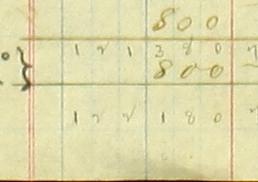 800
121 380
800
122 180